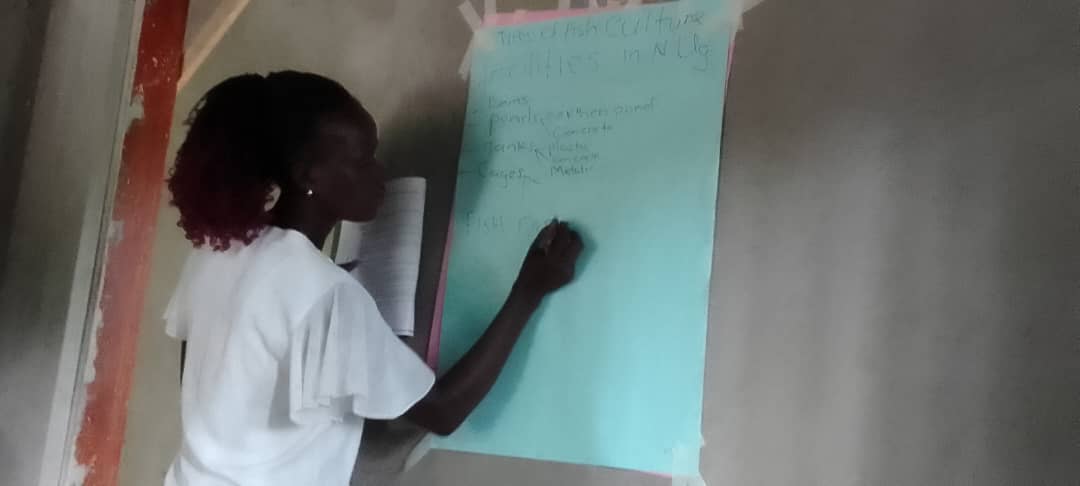 Types of Fish Culture
Facilities in N Ug
- Dams
- Ponds earthen pond
Concrete
- Tanks Plastic
Concrete
- Cages Metalic
Fish